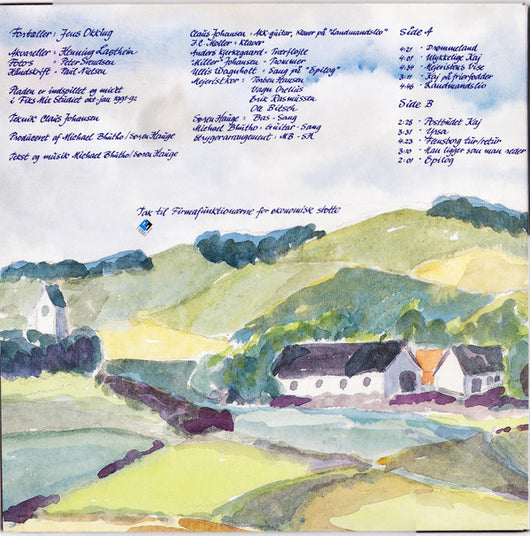 Fortæller: Jens Okking
Akvareller: Henning Lasthein
Fotos: Peter Svendsen
Håndskrift: Poul Nielsen
Pladen er indspillet og mixet
i Fiks Mix Studiet okt-jan 1991-92
Teknik Claus Johansen
Produceret af Michael Bhütho/Søren Hauge
Tekst og musik Michael Bhütho/Søren Hauge
Claus Johansen: Akk guitar, Kaver på "Landmandsliv"
J.C. Møller: Klaver
Anders Kjerkegaard: Tværfløjte
"Miller" Johansen: Trommer
Ullis Wagnholt: Sang på "Epilog"
Mejerist kor: Torben Knudsen
Vagn
Erik Rasmussen
Ole Bitsch
Søren Hauge: Bas - Sang
Michael Bhütho: Guitar - Sang
Strygerarrangement: MB - SH
Side A
4:21 Drømmeland
4:01 Ulykkelige Kaj
4:34 Mejeristens Vise
3:11 Kaj på frierfødder
4:46 Landmandsliv
Side B
2:26 Postbudet Kaj
3:31 Yrsa
4:23 Flensborg tur/retur
3:10 Man ligger som man reder
2:01 Epilog
Tak til Firmafunktionærerne for økonomisk støtte